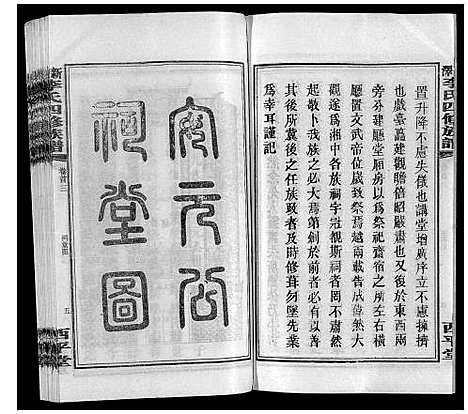 李氏四修族譜
置升降不慮失儀也講堂增廣序立不慮擁擠
戲臺鼎建觀瞻倍昭嚴肅也又於東西兩
旁分建廳堂廂房以爲祭祀齋宿之所并
廳置文武帝位歲致祭焉越兩載告成偉然
觀遂爲湘中各族祠宇冠覩斯祠者罔不肅然
起敬卜我族之必大焉第創於前者必有以善
其後所冀後之任族政者及時修葺勿墜先業
爲幸耳謹記
西平堂
定元公
祠堂圖
李氏四修族譜
卷首三
祠堂圖
五
西平堂